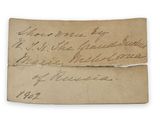 Shoes worn by
H.I.H. The Grand Duchess
Marie, Nicholaevna
of Russia.
1902